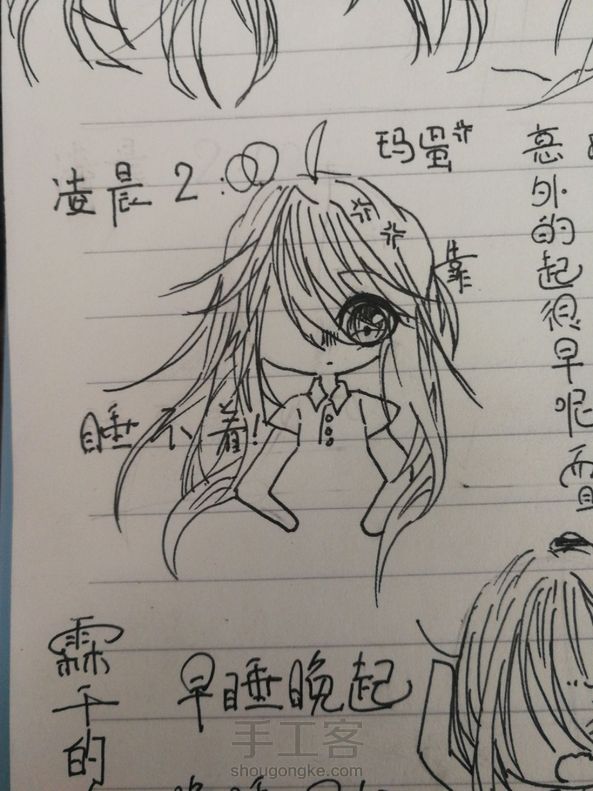 凌晨2:00
玛蛋
靠
睡不着!
意外的起很早呢
早睡晚起
霖千的
手工客
shougongke.com